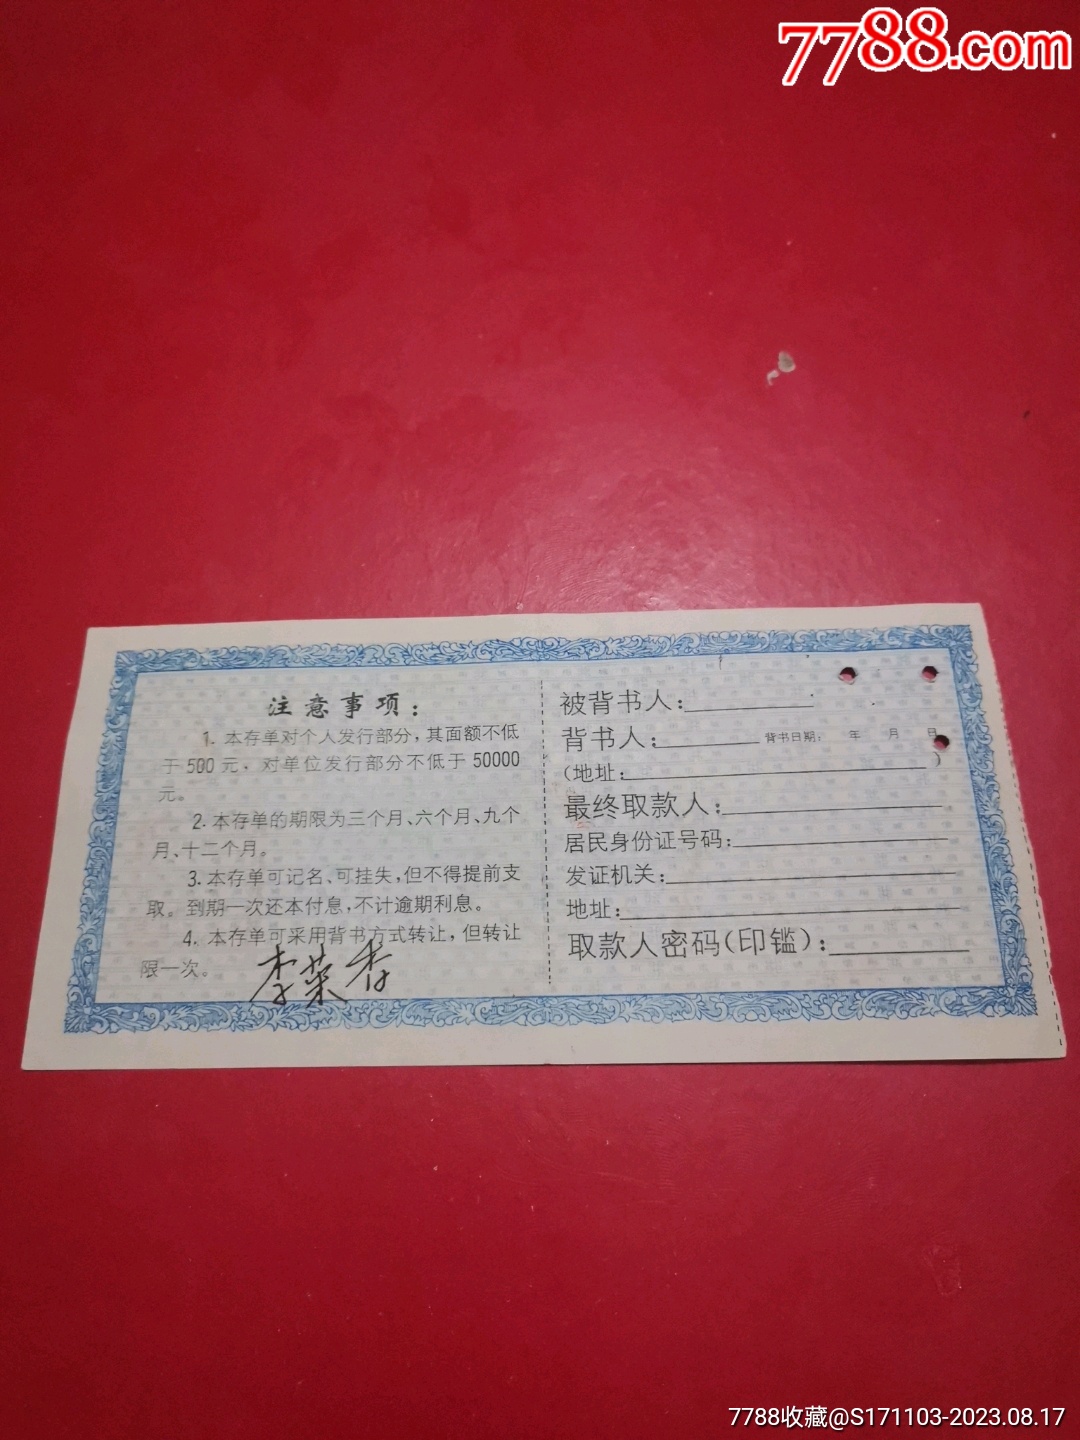 7788.com
注意事项：
1. 本存单对个人发行部分，其面额不低
于500元，对单位发行部分不低于50000
元。
2. 本存单的期限为三个月、六个月、九个
月、十二个月。
3. 本存单可记名、可挂失，但不得提前支
取。到期一次还本付息，不计逾期利息。
4. 本存单可采用背书方式转让，但转让
限一次。
李菜香
被背书人：
背书人： 背书日期： 年 月 日
（地址： ）
最终取款人：
居民身份证号码：
发证机关：
地址：
取款人密码（印鑑）：
7788收藏@S171103-2023.08.17